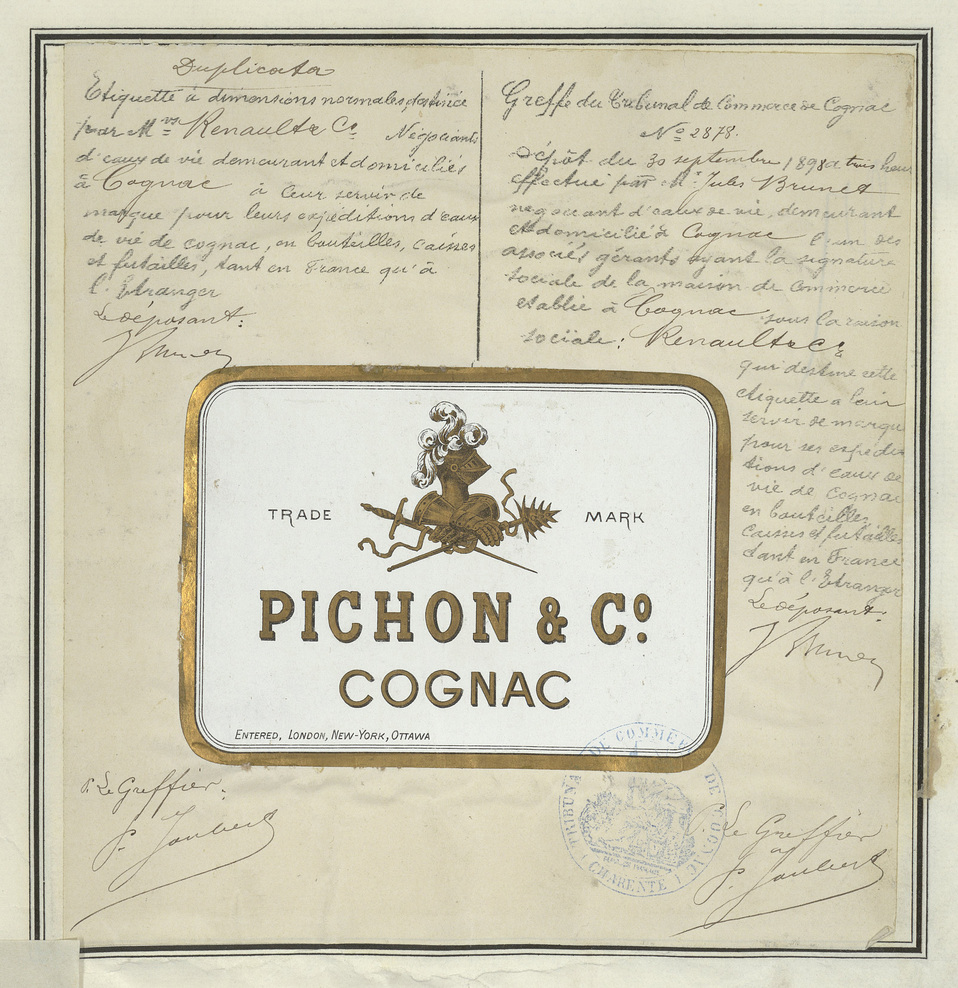 Duplicata
Etiquette à dimensions normales, destinée
par Mrs Renault & Co Négociants
d'eaux de vie demeurant et domiciliés
à Cognac à leur servir de
marque pour leurs expéditions d'eaux
de vie de cognac, en bouteilles, caisses
et futailles, tant en France qu'à
l'Etranger
Le déposant:
J Brunet
Greffe du Tribunal de Commerce de Cognac
No 2878.
Dépôt du 30 septembre 1898 à trois heures
effectué par Mr Jules Brunet
négociant d'eaux de vie, demeurant
et domicilié à Cognac l'un des
associés gérants ayant la signature
sociale de la maison de Commerce
etablie à Cognac sous la raison
sociale: Renault & Co
qui destine cette
étiquette à leur
servir de marque
pour ses expédi
tions d'eaux de
vie de Cognac
en bouteilles
caisses et futailles
tant en France
qu'à l'Etranger
Le déposant:
J Brunet
TRADE MARK
PICHON & Co.
COGNAC
ENTERED, LONDON, NEW-YORK, OTTAWA
TRIBUNAL DE COMMERCE DE COGNAC
CHARENTE
p. Le Greffier.
P. Joubert
p. Le Greffier
P. Joubert